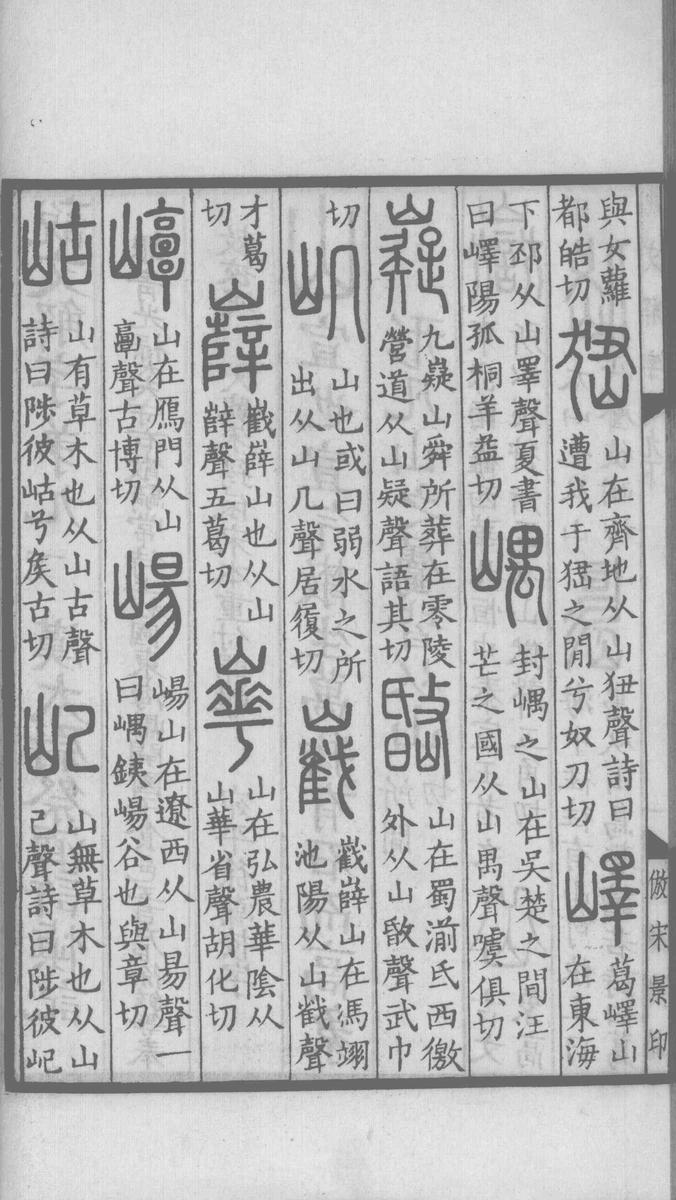 與女蘿
都皓切
峱
山在齊地从山狃聲詩曰
遭我于峱之閒兮奴刀切
嶧
葛嶧山
在東海
下邳从山睪聲夏書
曰嶧陽孤桐羊益切
嵎
封嵎之山在吳楚之間汪
芒之國从山禺聲噳俱切
嶷
九嶷山舜所葬在零陵
營道从山疑聲語其切
𡼏
山在蜀湔氐西徼
外从山敃聲武巾
切
屼
山也或曰弱水之所
出从山几聲居履切
巀
巀嶭山在馮翊
池陽从山𢧵聲
才葛
切
嶭
巀嶭山也从山
辥聲五葛切
崋
山在弘農華陰从
山華省聲胡化切
崞
山在鴈門从山
𩫏聲古博切
崵
崵山在遼西从山昜聲一
曰嵎銕崵谷也與章切
岵
山有草木也从山古聲
詩曰陟彼岵兮矦古切
屺
山無草木也从山
己聲詩曰陟彼屺
倣宋景印